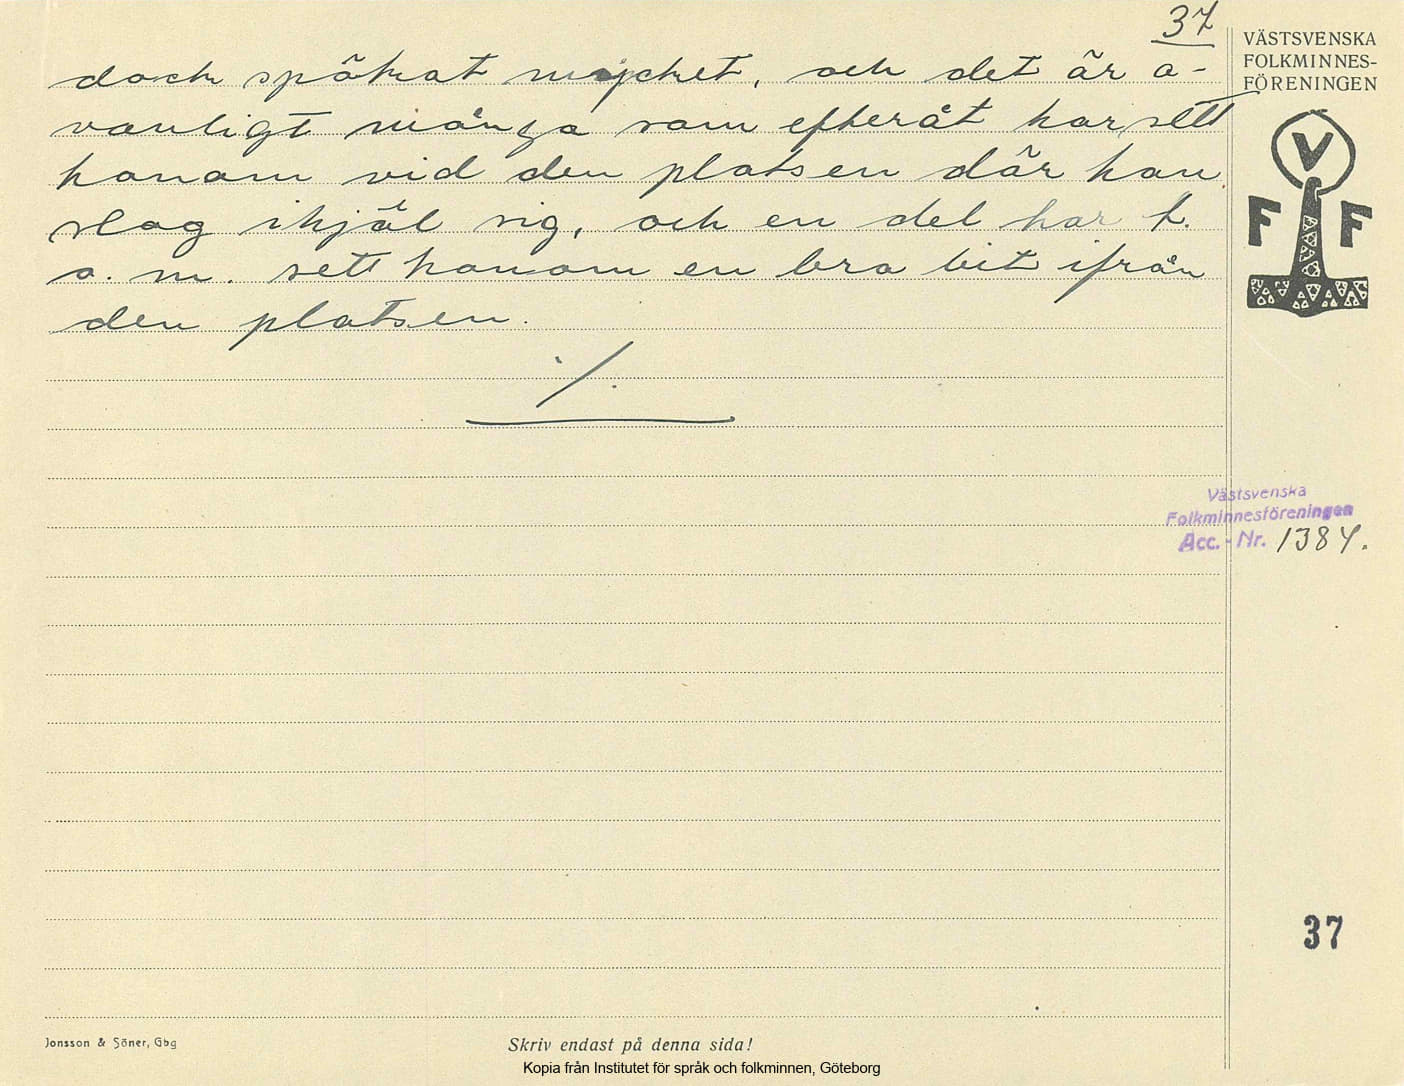 37
dock spökat mycket, och det är o-
vanligt många som efteråt har sett
honom vid den platsen där han
slog ihjäl sig, och en del har t.
o. m. sett honom en bra bit ifrån
den platsen.
./.
VÄSTSVENSKA
FOLKMINNES-
FÖRENINGEN
V
F F
Västsvenska
Folkminnesföreningen
Acc. - Nr. 1384.
37
Jonsson & Söner, Gbg
Skriv endast på denna sida!
Kopia från Institutet för språk och folkminnen, Göteborg